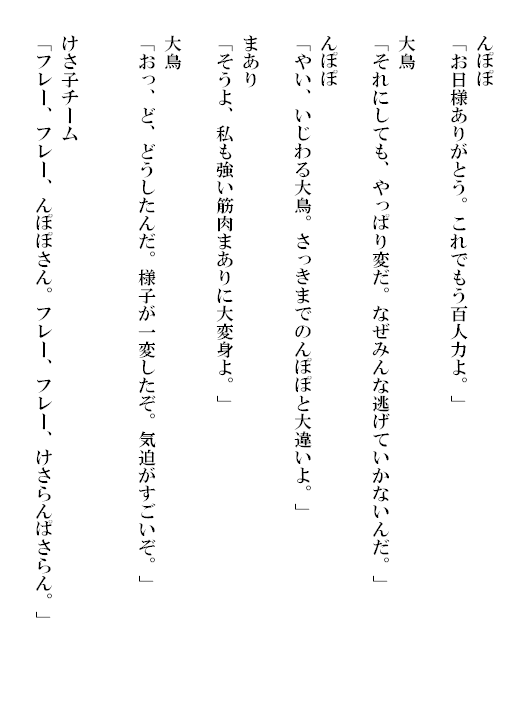 んぽぽ
「お日様ありがとう。これでもう百人力よ。」
大鳥
「それにしても、やっぱり変だ。なぜみんな逃げていかないんだ。」
んぽぽ
「やい、いじわる大鳥。さっきまでのんぽぽと大違いよ。」
まあり
「そうよ、私も強い筋肉まありに大変身よ。」
大鳥
「おっ、ど、どうしたんだ。様子が一変したぞ。気迫がすごいぞ。」
けさ子チーム
「フレー、フレー、んぽぽさん。フレー、フレー、けさらんぱさらん。」